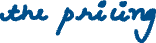 the pricing